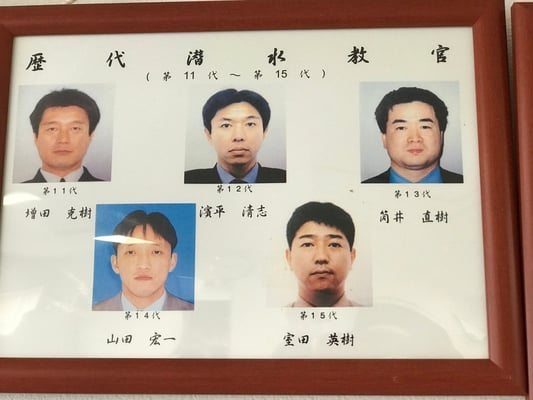 歴代潜水教官
(第11代～第15代)
第11代
第12代
第13代
増田 克樹
濱平 清志
筒井 直樹
第14代
第15代
山田 宏一
室田 英樹